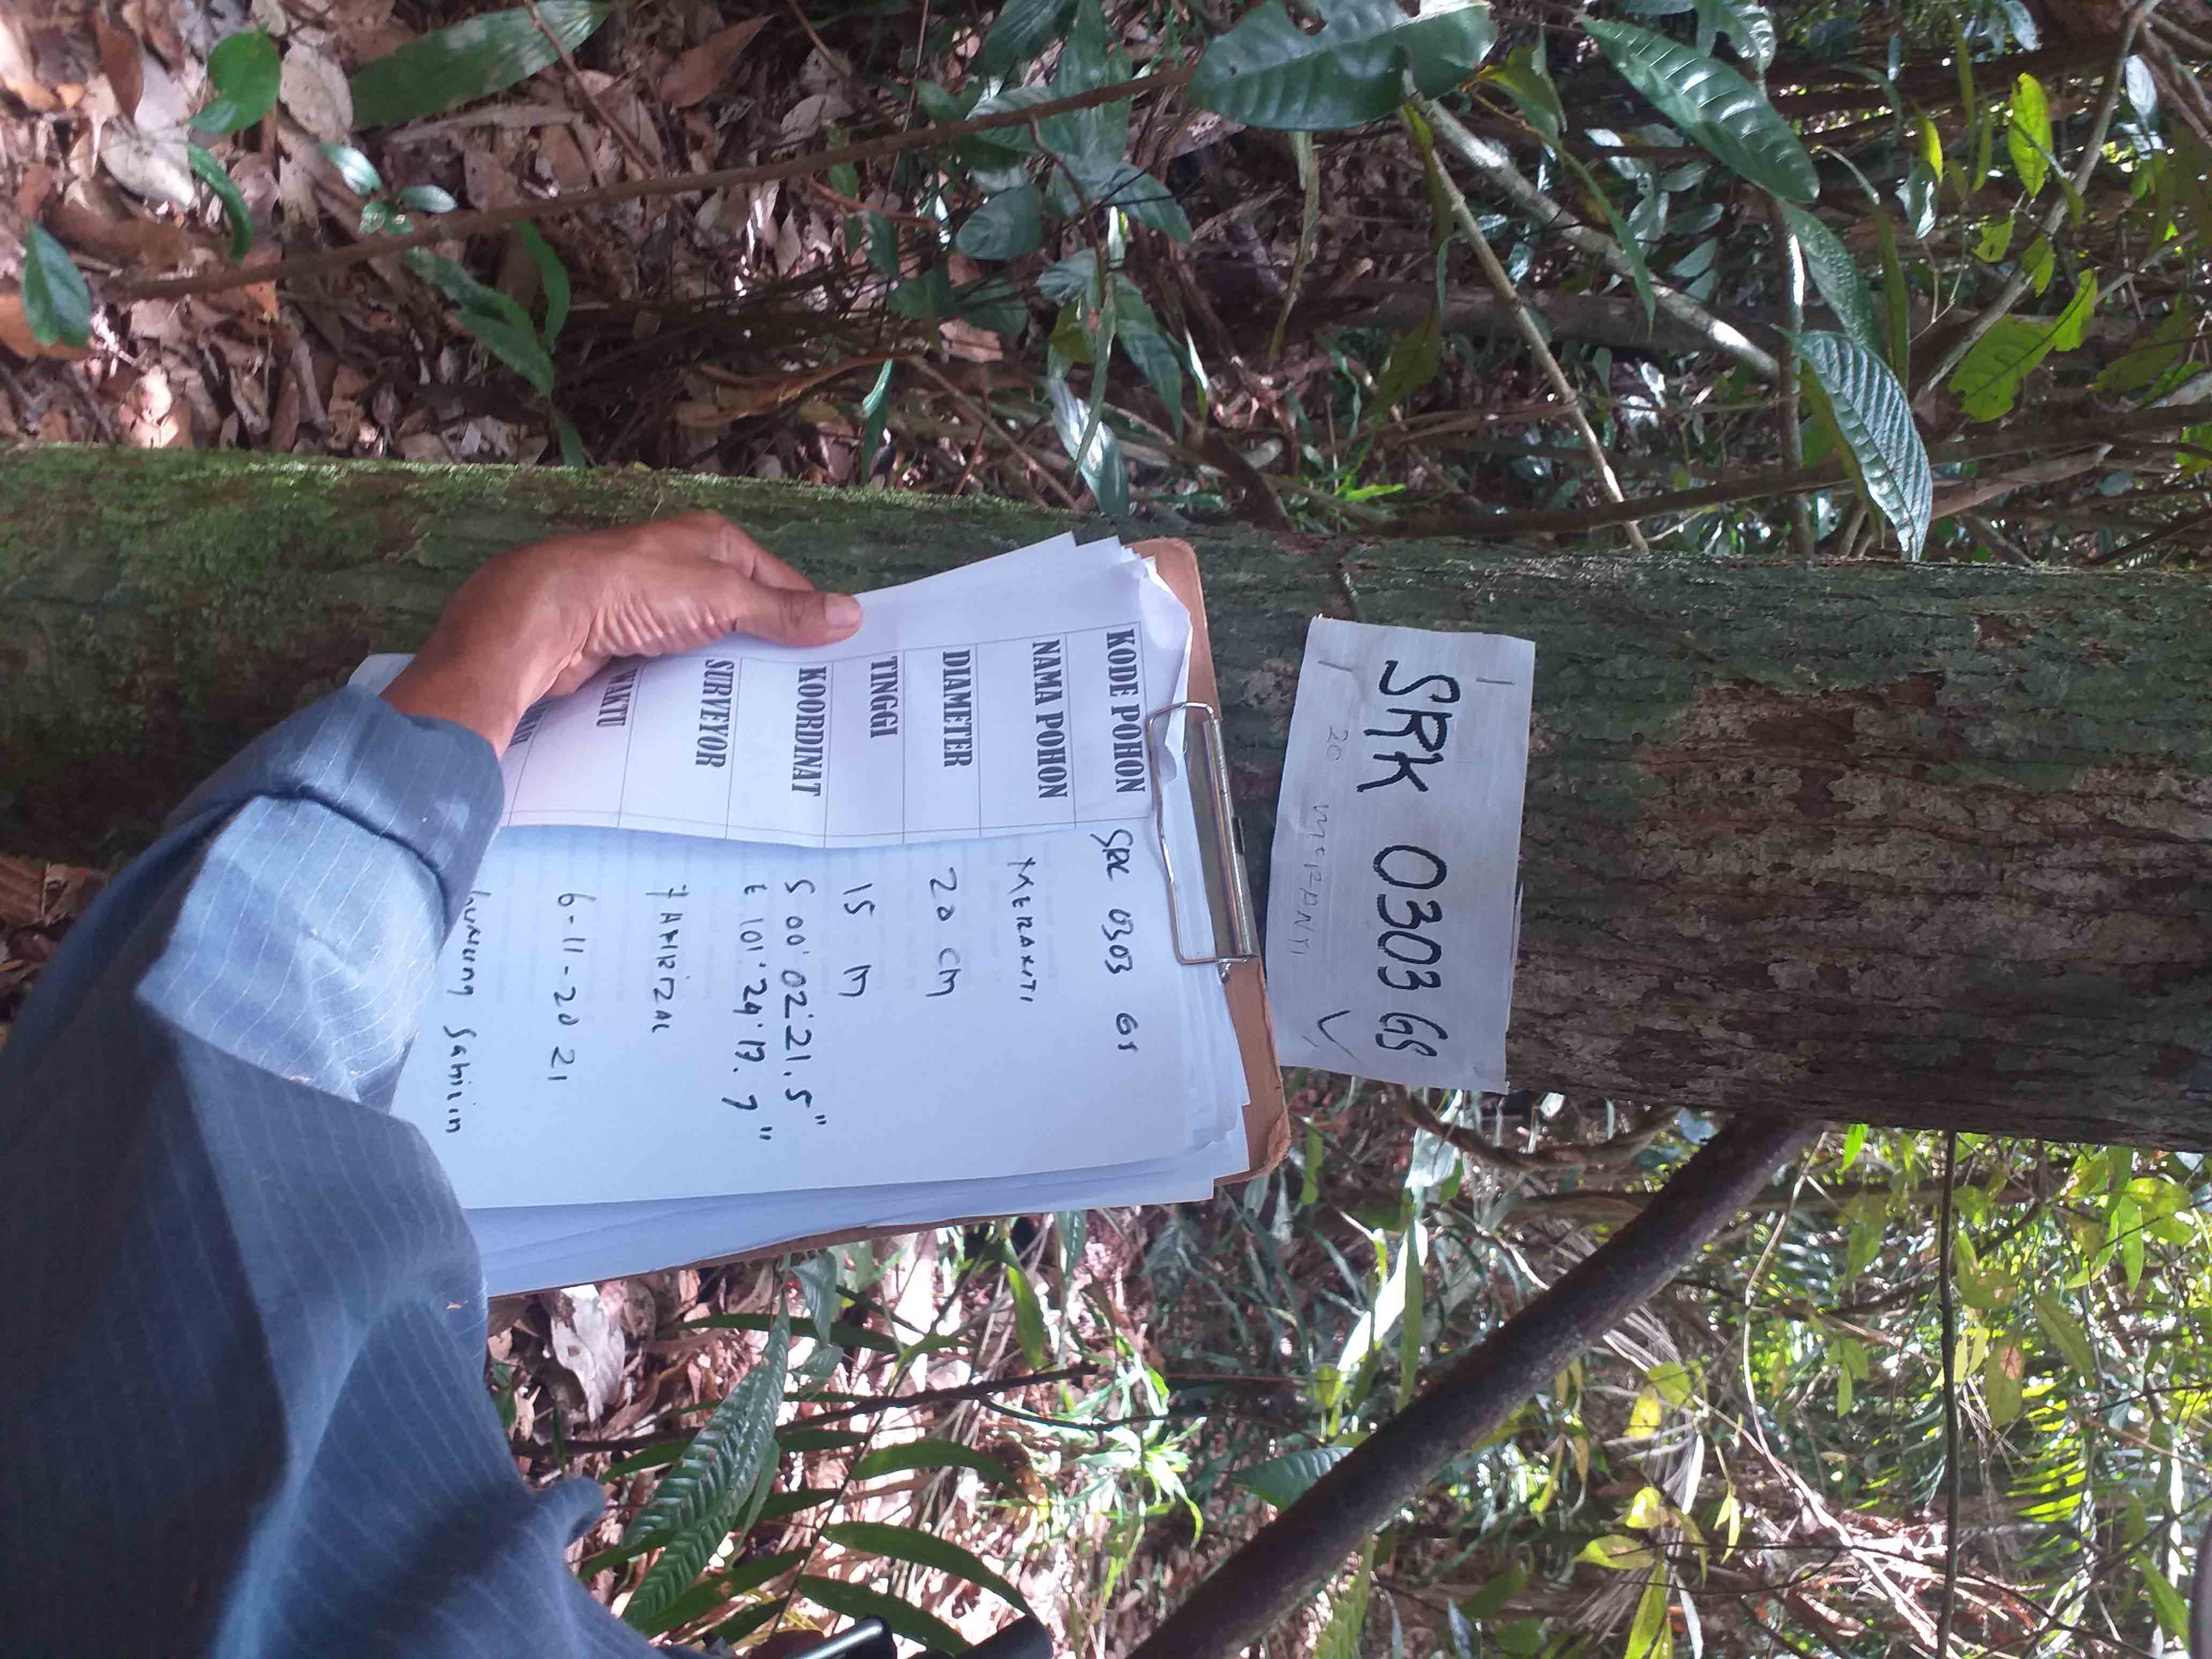 SRK 0303 GS
20 MERANTI
KODE POHON SRK 0303 GS
NAMA POHON MERANTI
DIAMETER 20 CM
TINGGI 15 M
KOORDINAT S 00° 02' 21.5"
E 101° 24' 17. 7"
SURVEYOR FAHRIZAL
WAKTU 6-11-2021
Sahirin